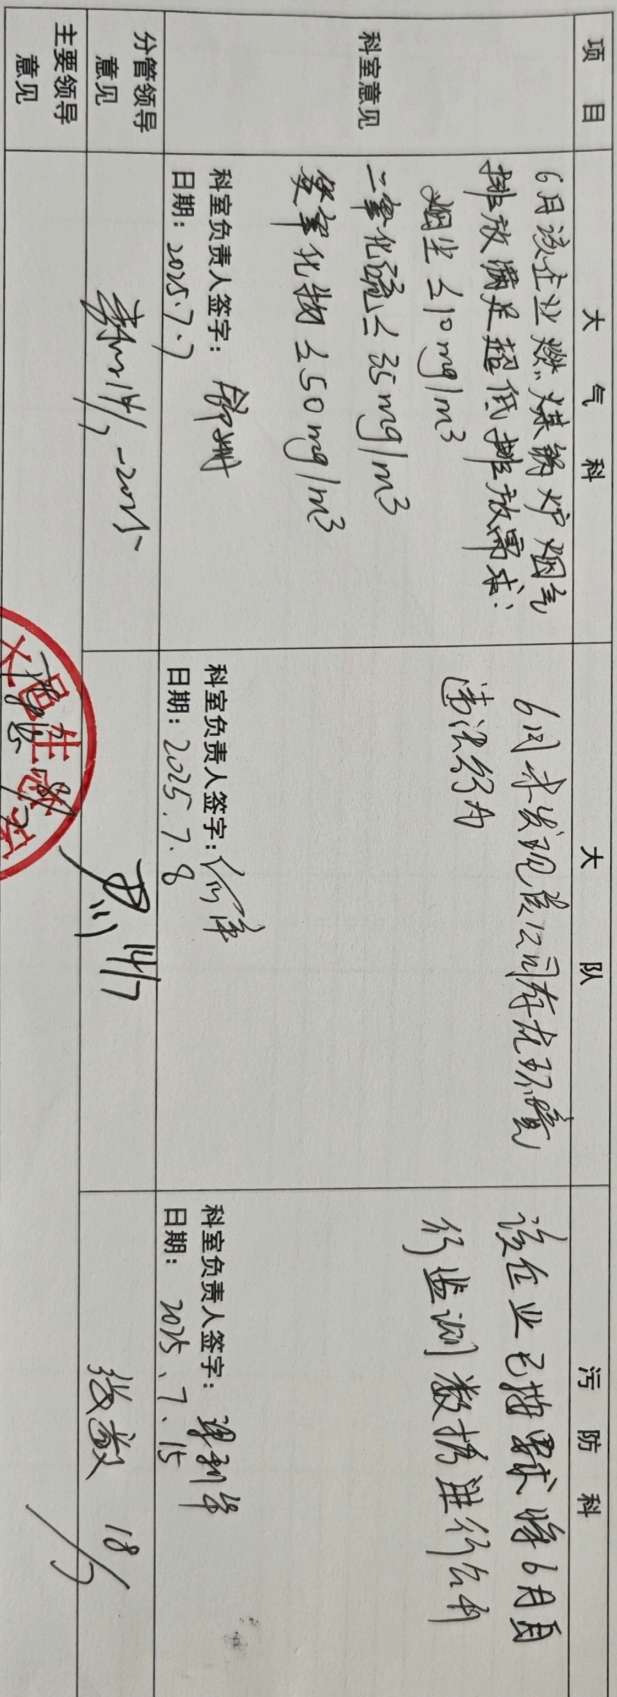 项 目
大 气 科
大 队
污 防 科
科室意见
6月该企业燃煤锅炉烟气
排放满足超低排放需求：
烟尘≤10mg/m³
二氧化硫≤35mg/m³
氮氧化物≤50mg/m³
科室负责人签字：
日期：2025.7.7
6月未发现该公司存在环境
违法行为
科室负责人签字：
日期：2025.7.8
该企业已按要求将6月自
行监测数据进行公布
科室负责人签字：
日期：2025.7.15
分管领导
意见
14/7
18/7
主要领导
意见